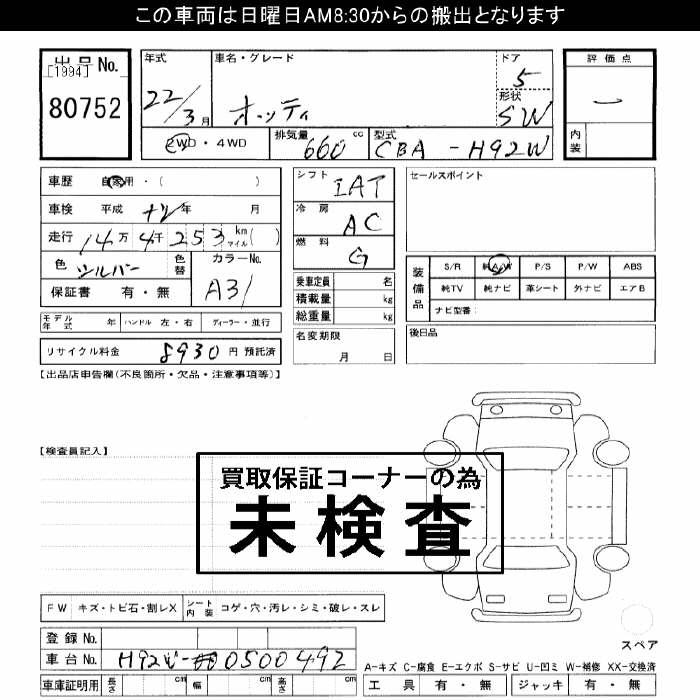 この車両は日曜日AM8:30からの搬出となります
出品No. [1994]
80752
年式 22/3月
車名・グレード オッティ
ドア 5
形状 SW
2WD・4WD
排気量 660 cc
型式 CBA-H92W
評価点
内装
車歴 自家用・( )
車検 平成 年 月
走行 14万 4千 253 km マイル ( )
色 シルバー 色替
カラーNo. A31
保証書 有・無
シフト IAT
冷房 AC
燃料 G
乗車定員 名
積載量 kg
総重量 kg
セールスポイント
装備品
S/R 純A/W P/S P/W ABS
純TV 純ナビ 革シート 外ナビ エアB
ナビ型番:
モデル年式 年 ハンドル 左・右 ディーラー・並行
名変期限 月 日
後日品
リサイクル料金 8930 円 預託済
【出品店申告欄(不良箇所・欠品・注意事項等)】
【検査員記入】
買取保証コーナーの為
未検査
FW キズ・トビ石・割レX シート内装 コゲ・穴・汚レ・シミ・破レ・スレ
スペア
登録No.
車台No. H92W-0500492
車庫証明用 長さ cm 幅 cm 高さ cm
A-キズ C-腐食 E-エクボ S-サビ U-凹ミ W-補修 XX-交換済
工具 有・無 ジャッキ 有・無